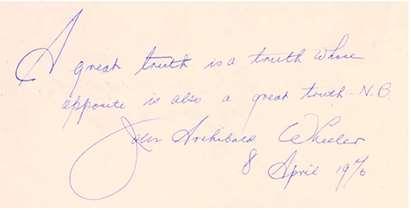 A great truth is a truth whose
opposite is also a great truth - N.B.
John Archibald Wheeler
8 April 1976